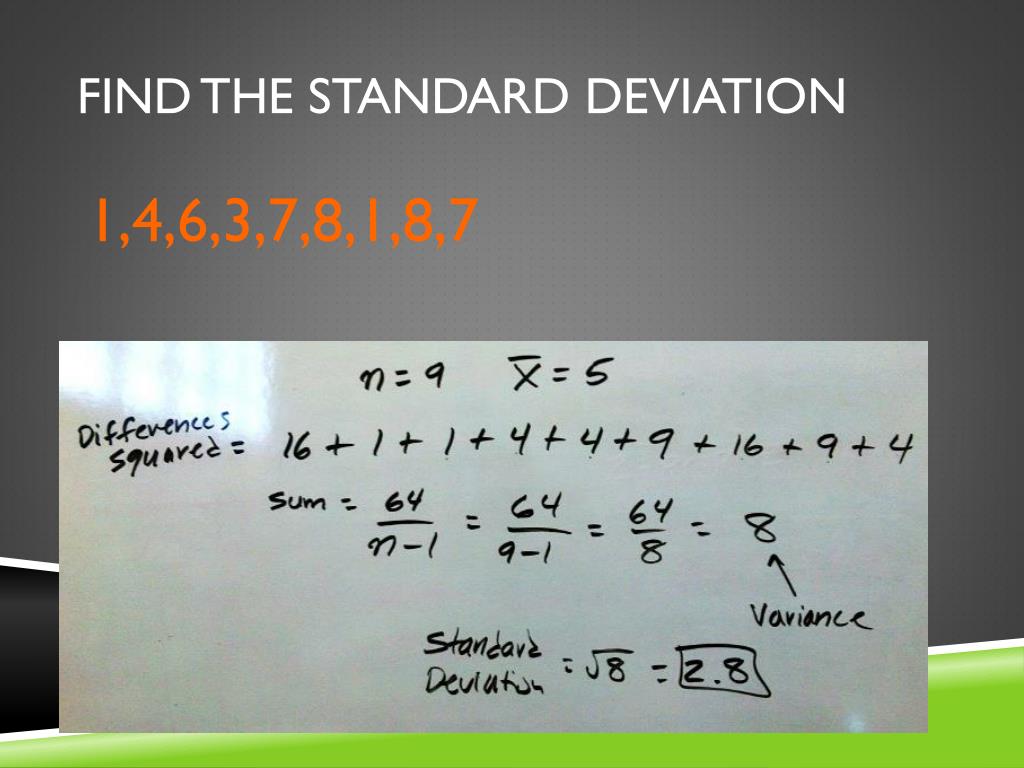 FIND THE STANDARD DEVIATION
1,4,6,3,7,8,1,8,7
n = 9 x̅ = 5
Differences
squared = 16 + 1 + 1 + 4 + 4 + 9 + 16 + 9 + 4
sum = 64/n-1 = 64/9-1 = 64/8 = 8
Variance
Standard
Deviation = √8 = 2.8